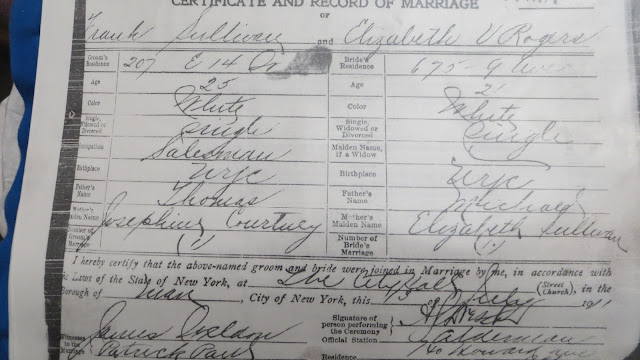 CERTIFICATE AND RECORD OF MARRIAGE
OF
Frank Sullivan and Elizabeth V Rogers
Groom's Residence 207 E 14 Bride's Residence 675 - 9
Age 25 Age 21
Color White Color White
Single, Widowed or Divorced Single Single, Widowed or Divorced Single
Occupation Salesman Maiden Name, if a Widow
Birthplace NYC Birthplace NYC
Father's Name Thomas Father's Name Michael
Mother's Maiden Name Josephine Courtney Mother's Maiden Name Elizabeth Sullivan
Number of Groom's Marriage (1) Number of Bride's Marriage (1)
I hereby certify that the above-named groom and bride were joined in Marriage by me, in accordance with
the Laws of the State of New York, at The City Hall (Street Church), in the
Borough of Man, City of New York, this of July 191
James Signature of person performing the Ceremony
Witnesses to the Marriage Patrick Official Station Alderman
Residence